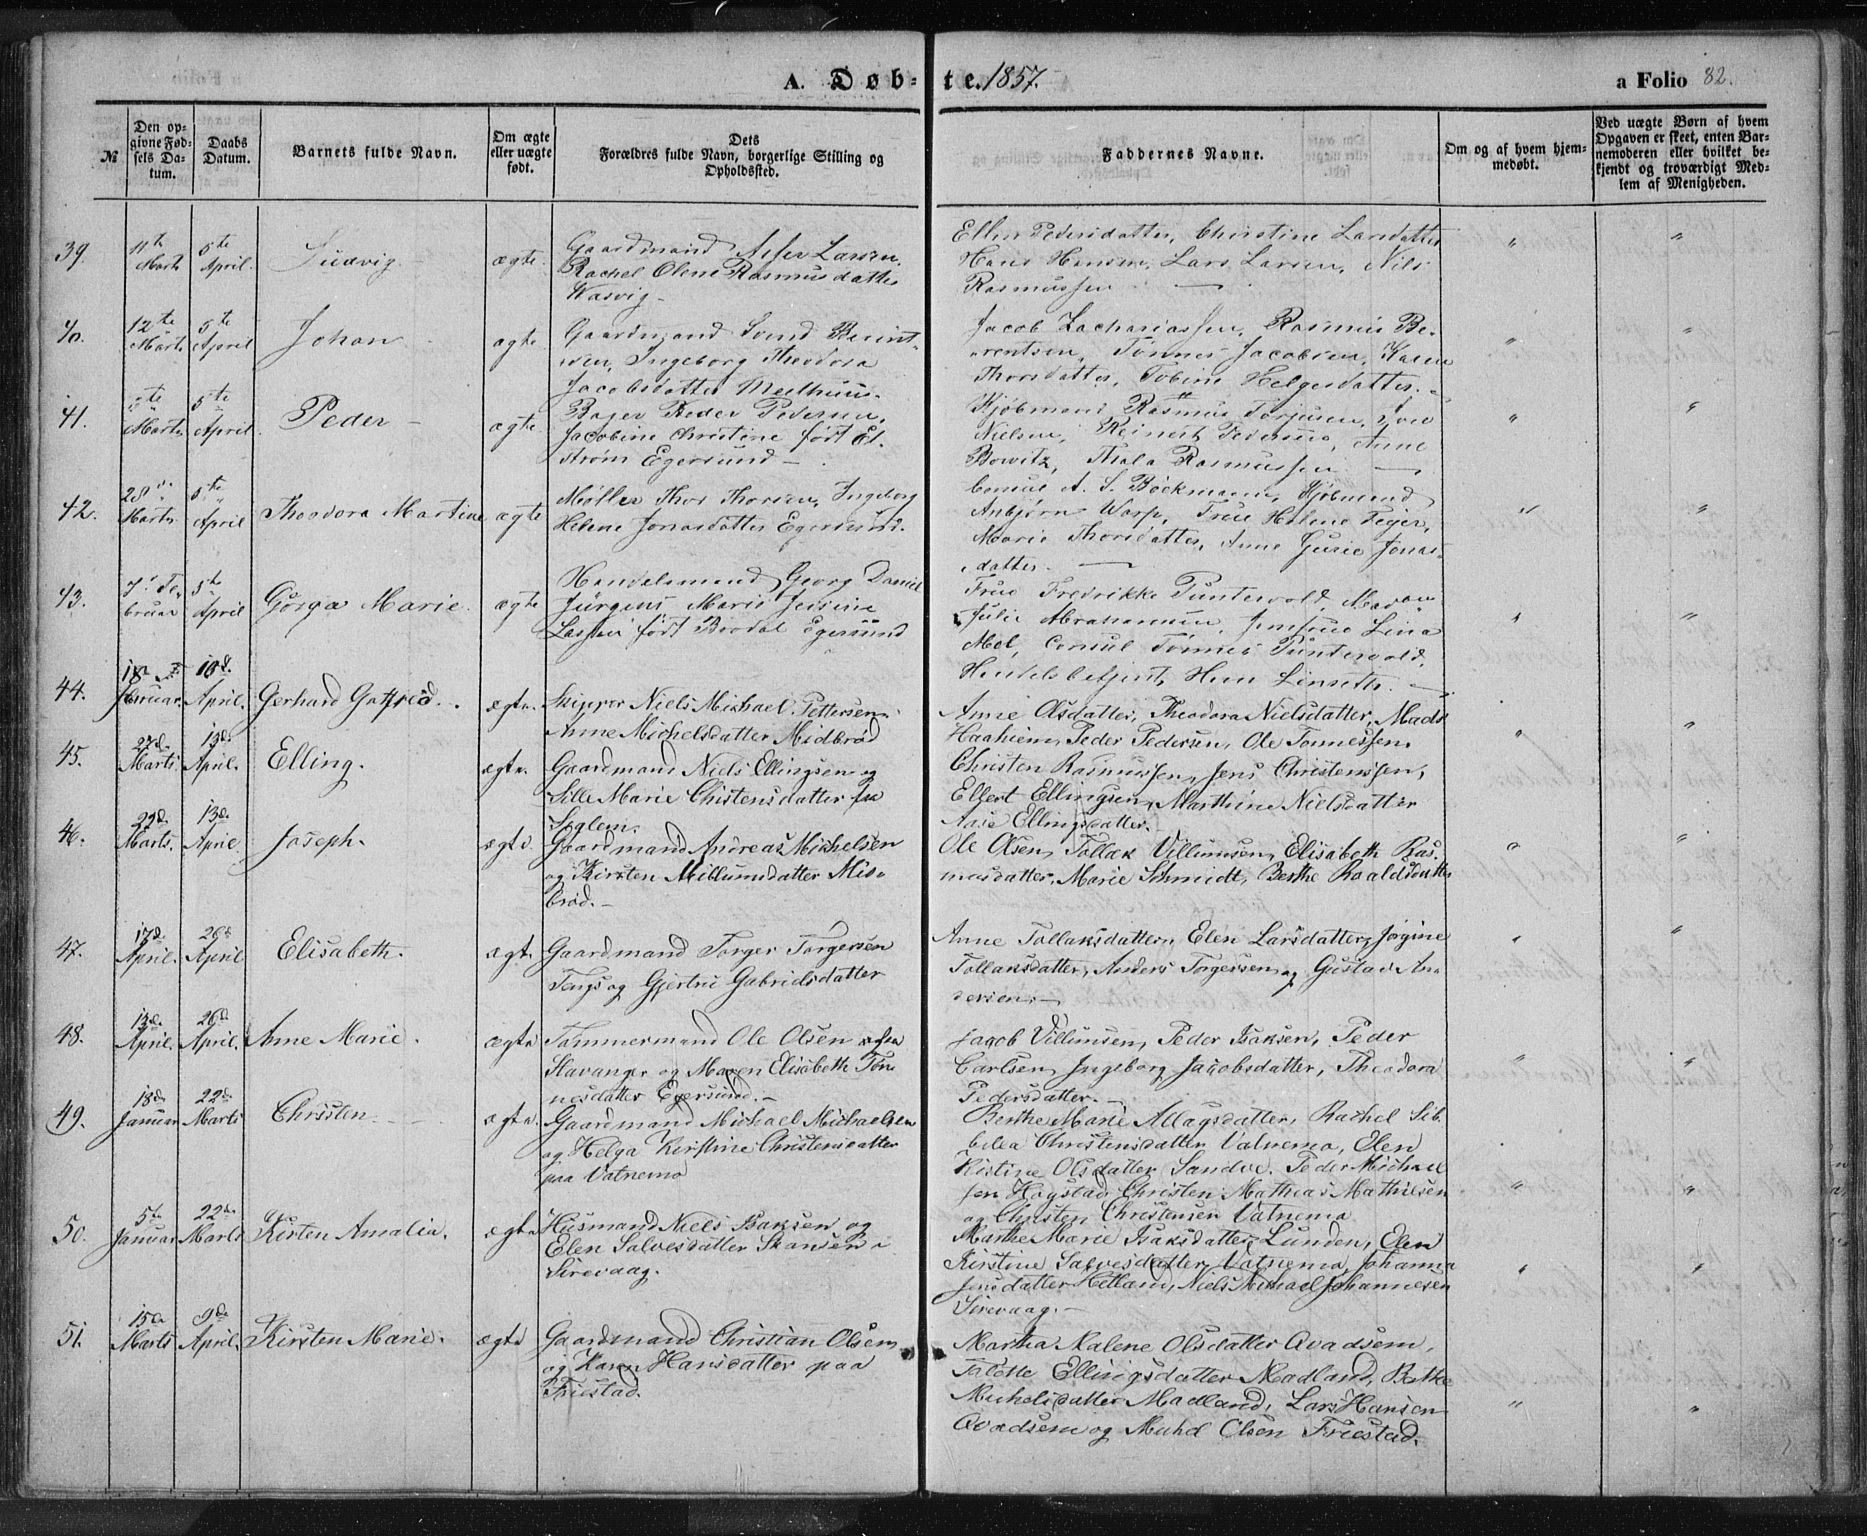 A. Døbte. 1857.
a Folio 82.
№
Den opgivne Fødsels Datum.
Daabs Datum.
Barnets fulde Navn.
Om ægte eller uægte født.
Dets Forældres fulde Navn, borgerlige Stilling og Opholdssted.
Faddernes Navne.
Om og af hvem hjemmedøbt.
Ved uægte Børn af hvem Opgaven er skeet, enten Barnemoderen eller hvilket bekjendt og troværdigt Medlem af Menigheden.
39. 11te Marts 5te April. Ludvig ægte.
Gaardmand Larsen,
Rachel Oline Rasmusdatter
Ellen Pedersdatter, Christine Larsdatter
Hans Hansen, Lars Larsen, Nils
Rasmussen —
40. 12te Marts 5te April Johan ægte
Gaardmand Svend Berint-
sen, Ingeborg Theodora
Jacobsdatter Meelhuus.
Jacob Zachariassen, Rasmus Be-
rentsen, Tønnes Jacobsen, Karen
Thorsdatter, Tobine Helgesdatter.
41. Marts 5te April. Peder — ægte
Bager Peder Pedersen,
Jacobine Christine født El-
strøm Egersund —
Kjøbmand Rasmus Torjusen,
Nielsen, Reinert Pedersen, Anne
Bowitz, Thala Rasmussen —
42. 28de Marts 5te April Theodora Martine ægte
Møller Thor Thorsen, Ingeborg
Helene Jonasdatter Egersund.
Consul A. S. Bøckmann, Kjøbmand
Anbjørn Warp, Frue Helene Feyer,
Marie Thorsdatter, Anne Gurie Jonas-
datter —
43. 7de Februar 5te April Gørga Marie. ægte
Handelsmand Georg Daniel
Jürgens, Maris Jensine
født Brodal Egersund
Frue Fredrikke Puntervold, Madam
Julie Abrahamsen, Jomfrue Lina
Mol, Consul Tønnes Puntervold,
Handelsbetjent Herr —
44. 18de Februar. 13d. April. Gerhard Gotfred. ægte.
Skipper Niels Michael Pettersen.
Anne Michelsdatter Midbrød
Anne Olsdatter, Theodora Nielsdatter, Mads
Peder Pedersen, Ole Tønnessen.
45. 23d. Marts. 13d. April. Elling. ægte.
Gaardmand Niels Ellingsen og
Sille Marie Chistensdatter fra
Christen Rasmussen, Jens Christenssen,
Ellert Ellingsen, Marthine Nielsdatter
Aase Ellingsdatter.
46. 29d. Marts. 13d. April Joseph. ægte.
Gaardmand Andreas Michelsen
og Kirsten Millumsdatter Mid-
brød.—
Ole Olsen, Tollak Villumsen, Elisabeth Ras-
musdatter, Marie Schmidt, Berthe Roaldsdatter
47. 17d. April. 26d April Elisabeth. ægt.
Gaardmand Torger Torgersen
Tengs og Gjertru Gabrielsdatter
Anne Tollaksdatter, Elen Larsdatter, Jørgine
Tollaksdatter, Anders Torgersen og Gustav An-
dersen.—
48. 13d. April. 26d. April. Anne Marie. ægte
Tømmermand Ole Olsen af fra
Stavanger og Maren Elisabeth Tøn-
nesdatter Egersund.—
Jacob Villumsen, Peder Isaksen, Peder
Carlsen, Ingeborg Jacobsdatter, Theodora
Pedersdatter.—
49. 18d. Januar 22de Marts Christen ægte.
Gaardmand Michael Michaelsen
og Helga Kirstine Christensdatter
paa Vatnemo
Berthe Marie Allagsdatter, Rachel Sib-
bilea Christensdatter Vatnemo, Elen
Kistine Olsdatter Sandve. Peder Michael-
sen Høgstad, Christen Mathias Mathiesen
og Christen Christensen Vatnemo
50. 5d. Januar 22de Marts Kirsten Amalia. ægte
Husmand Niels Isaksen og
Elen Salvesdatter Skansen i
Sirevaag.
Marthe Marie Isaksdatter Lunden, Elen
Kirstine Salvesdatter Vatnemo, Johanna
Jensdatter Hetland, Niels Michael Johannesen
Sirevaag.—
51. 15de Marts 9de April. Kirsten Marie. ægte
Gaardmand Christian Olsen
og Karen Hansdatter paa
Friestad.
Martha Malene Olsdatter Avadsem,
Talette Ellingsdatter Madland, Berthe
Michelsdatter Madland, Lars Hansen
Avadsem og Olsen Friestad.